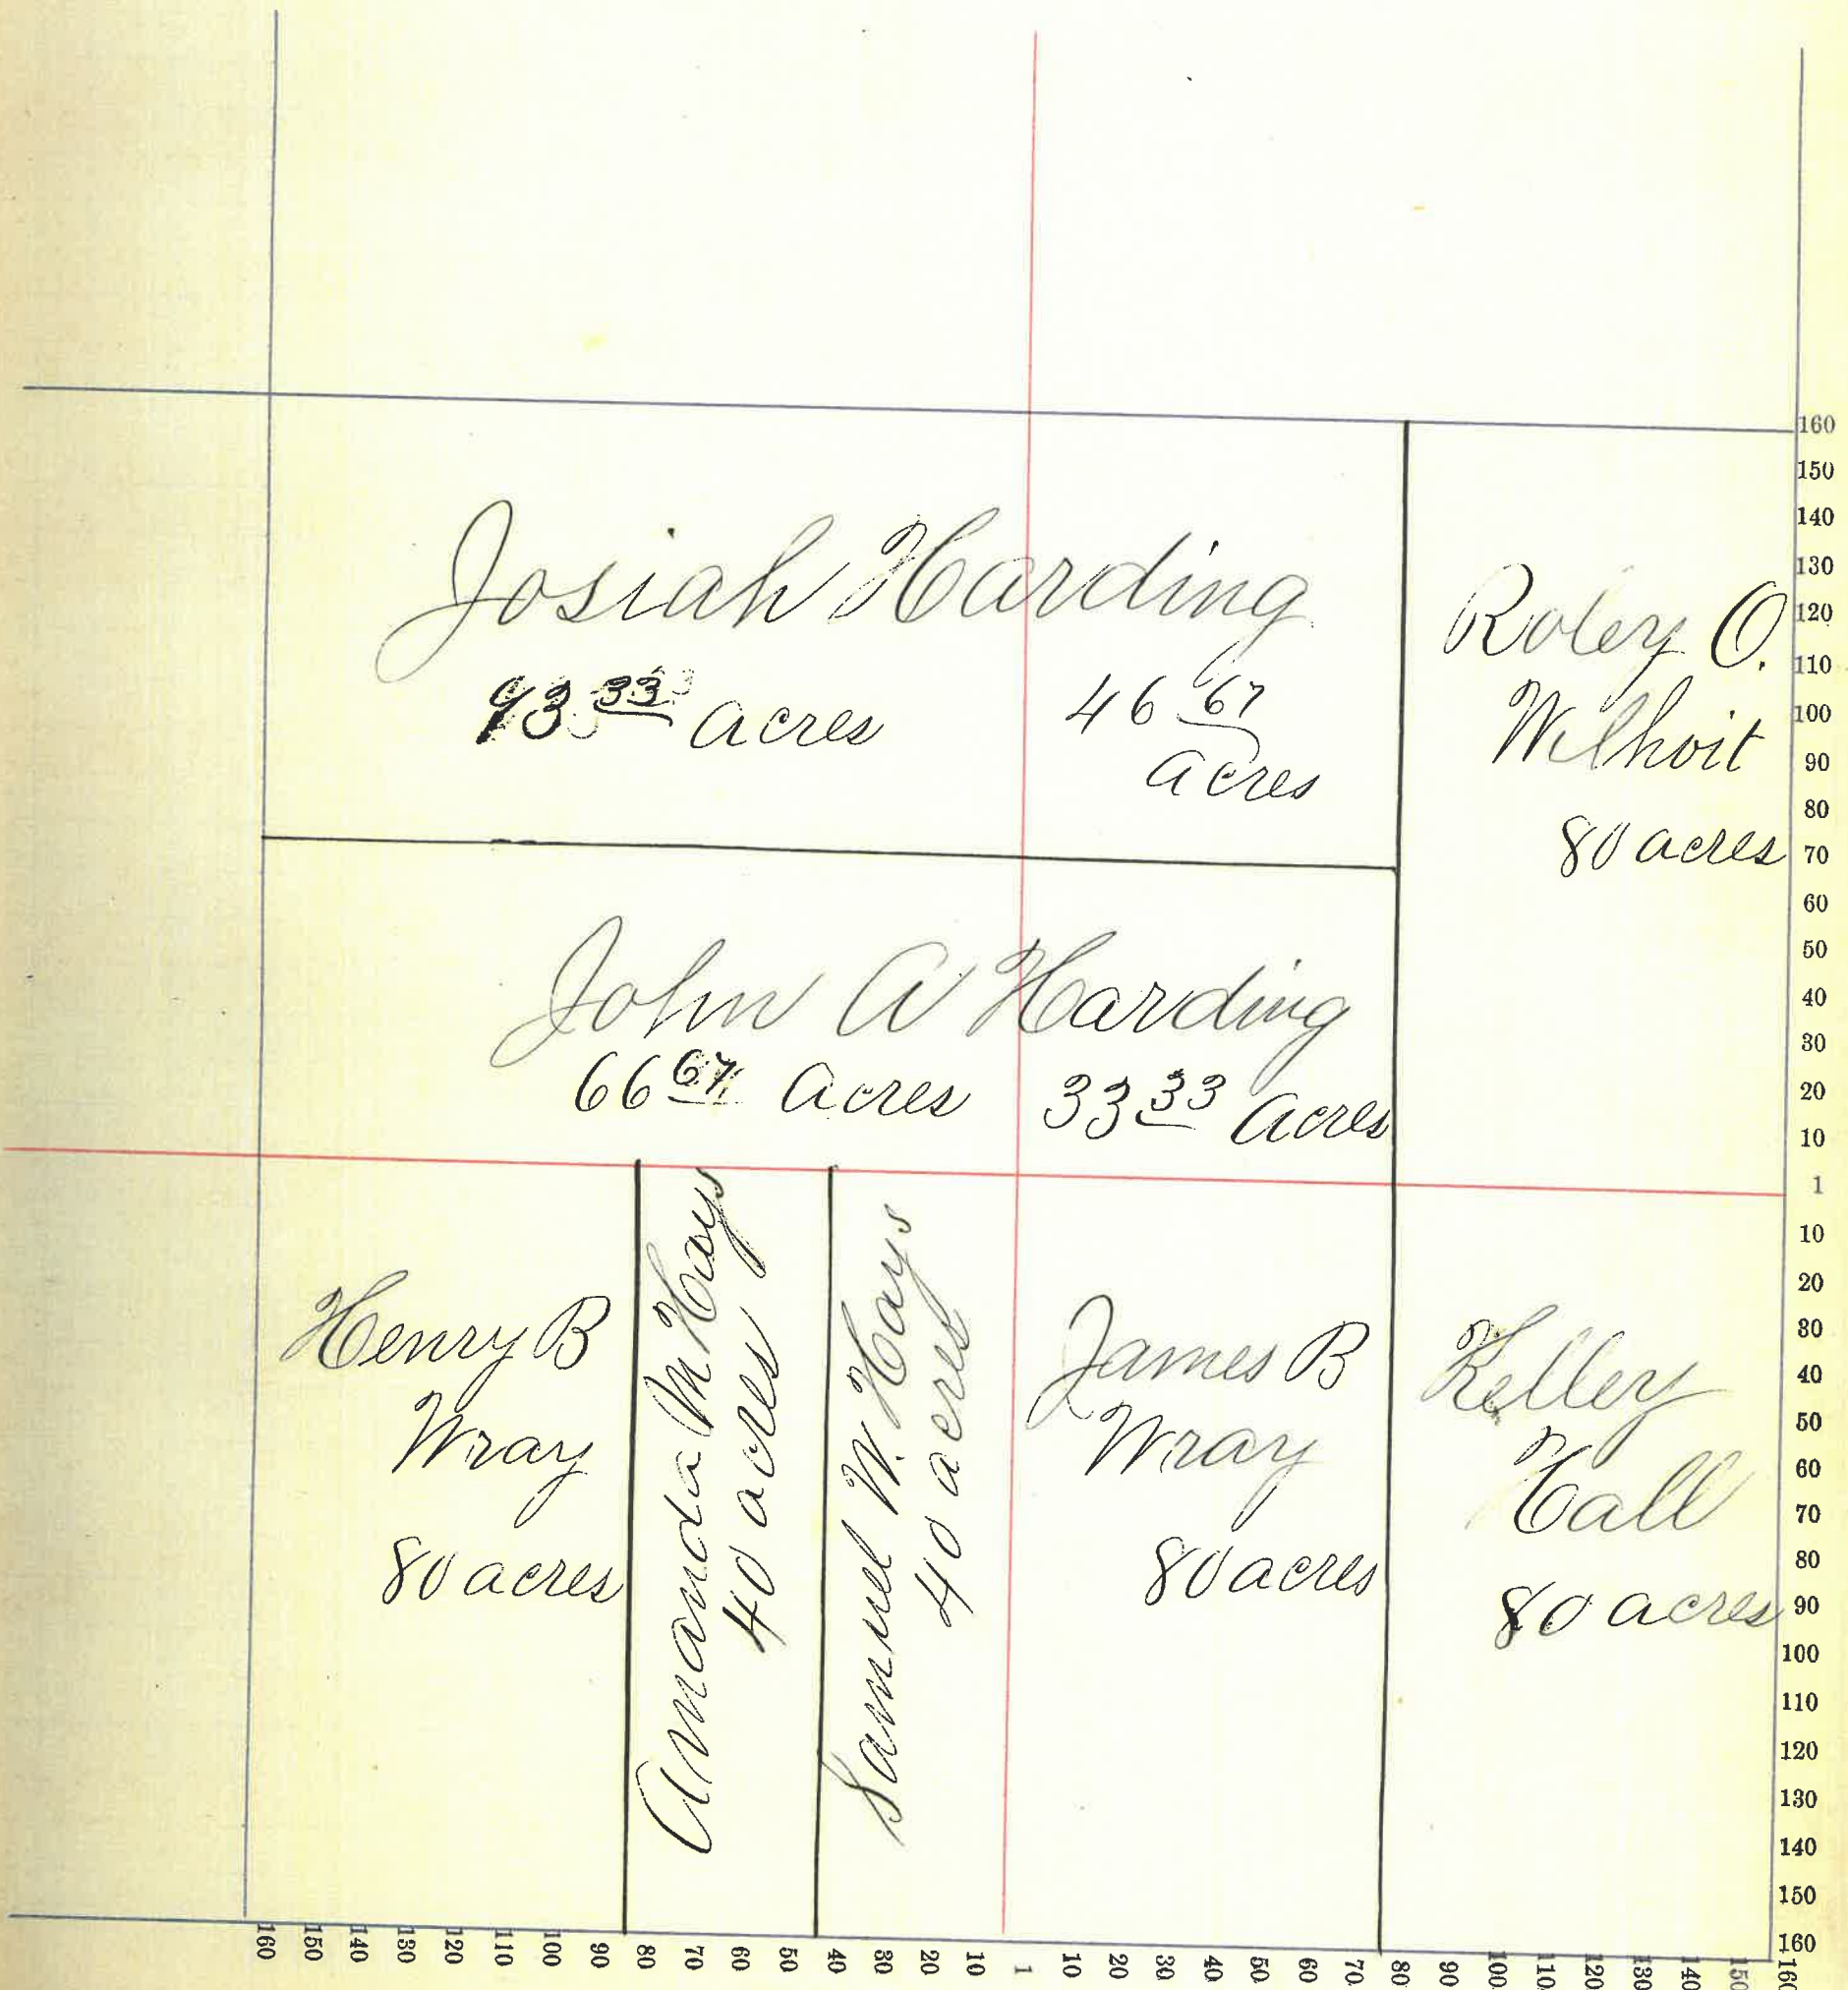 Josiah Harding
93 33 acres
46 67
acres
Roley O.
Wilhoit
80 acres
John A Harding
66 67 acres
33 33 acres
Henry B
Wray
80 acres
Amanda M Hays
40 acres
Samuel W. Hays
40 acres
James B
Wray
80 acres
Kelley
Call
80 acres
160
150
140
130
120
110
100
90
80
70
60
50
40
30
20
10
1
10
20
30
40
50
60
70
80
90
100
110
120
130
140
150
160
160 150 140 130 120 110 100 90 80 70 60 50 40 30 20 10 1 10 20 30 40 50 60 70 80 90 100 110 120 130 140 150 160